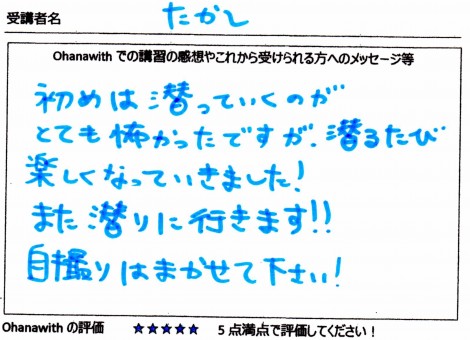 受講者名 たかし
Ohanawith での講習の感想やこれから受けられる方へのメッセージ等
初めは潜っていくのが
とても怖かったですが、潜るたび
楽しくなっていきました!
また潜りに行きます!!
自撮りはまかせて下さい!
Ohanawith の評価 ★★★★★ 5点満点で評価してください!